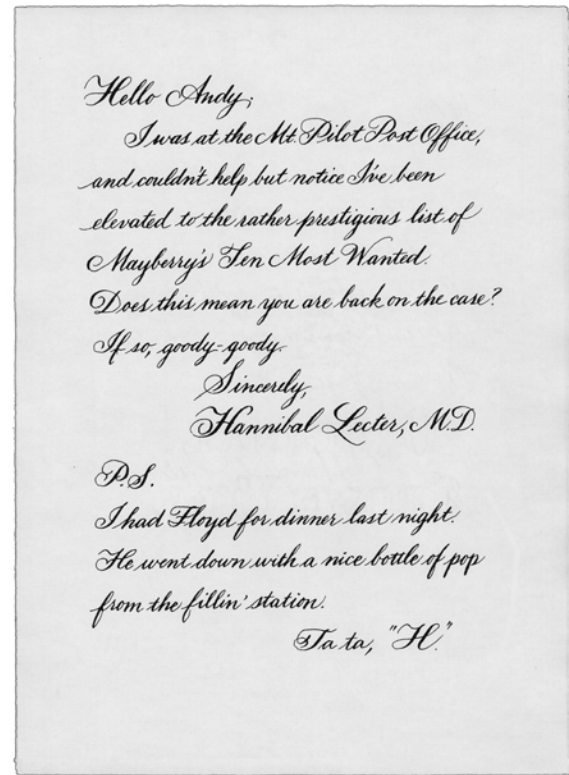 Hello Andy;
I was at the Mt. Pilot Post Office,
and couldn't help but notice I've been
elevated to the rather prestigious list of
Mayberry's Ten Most Wanted.
Does this mean you are back on the case?
If so, goody-goody.
Sincerely,
Hannibal Lecter, M.D.
P.S.
I had Floyd for dinner last night.
He went down with a nice bottle of pop
from the fillin' station.
Ta ta, "H."